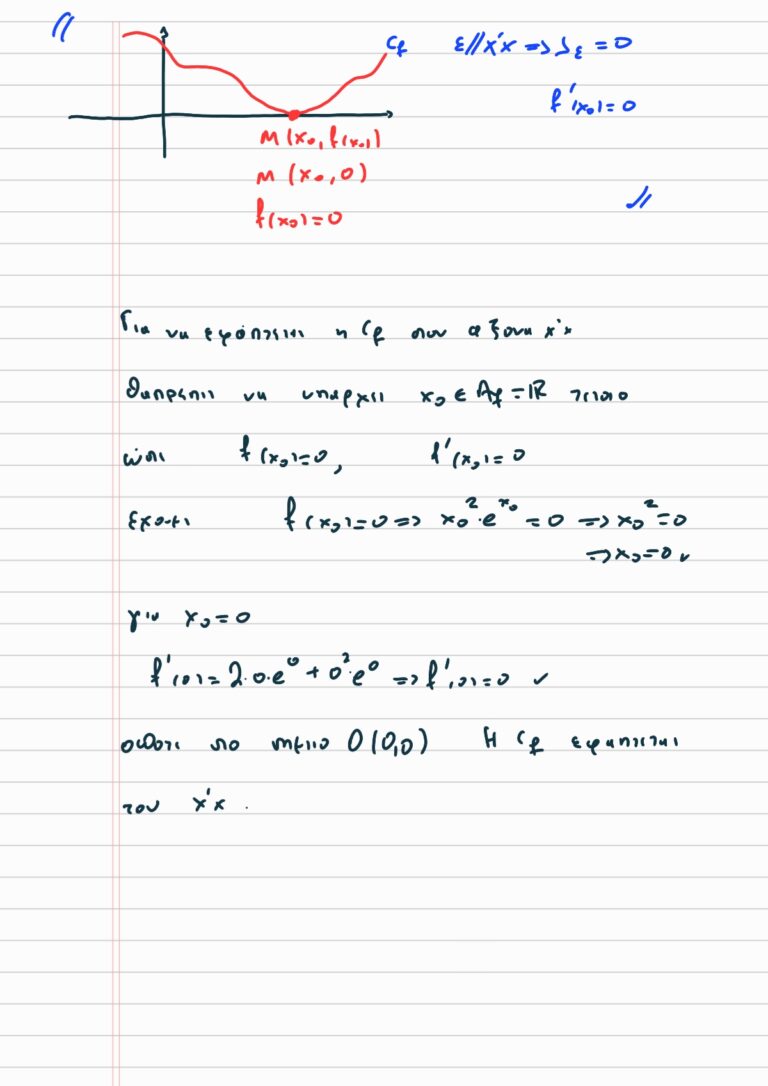 "
Cf
ε//x'x ⇒ λε = 0
f'(x₀) = 0
M(x₀, f(x₀))
M(x₀, 0)
f(x₀) = 0
"
Για να εφάπτεται η Cf στον αξονα x'x
θα πρέπει να υπαρχει x₀ ∈ Af = ℝ τετοιο
ώστε f(x₀) = 0, f'(x₀) = 0
Εχουμε f(x₀) = 0 ⇒ x₀²·e^x₀ = 0 ⇒ x₀² = 0
⇒ x₀ = 0 ✓
για x₀ = 0
f'(0) = 2·0·e⁰ + 0²·e⁰ ⇒ f'(0) = 0 ✓
οποτε στο σημειο O(0,0) Η Cf εφαπτεται
του x'x.